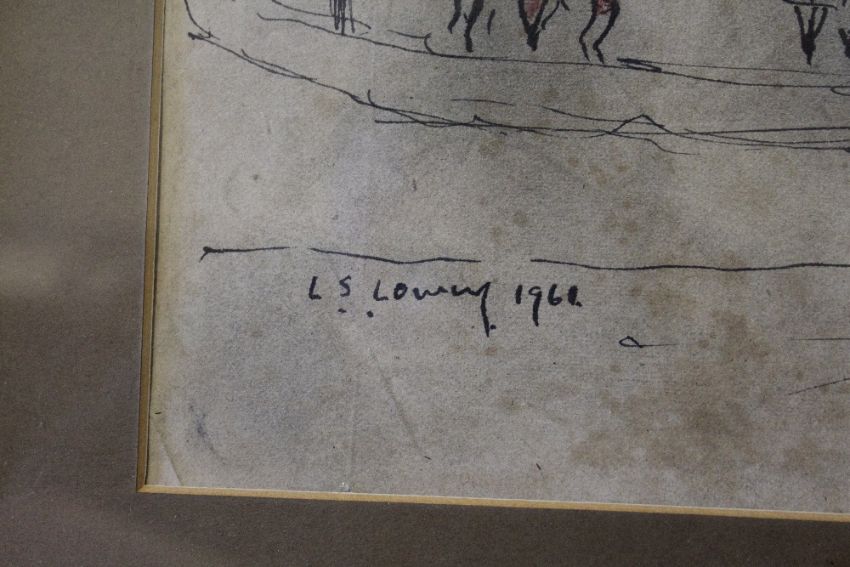 L S Lowry 1961.